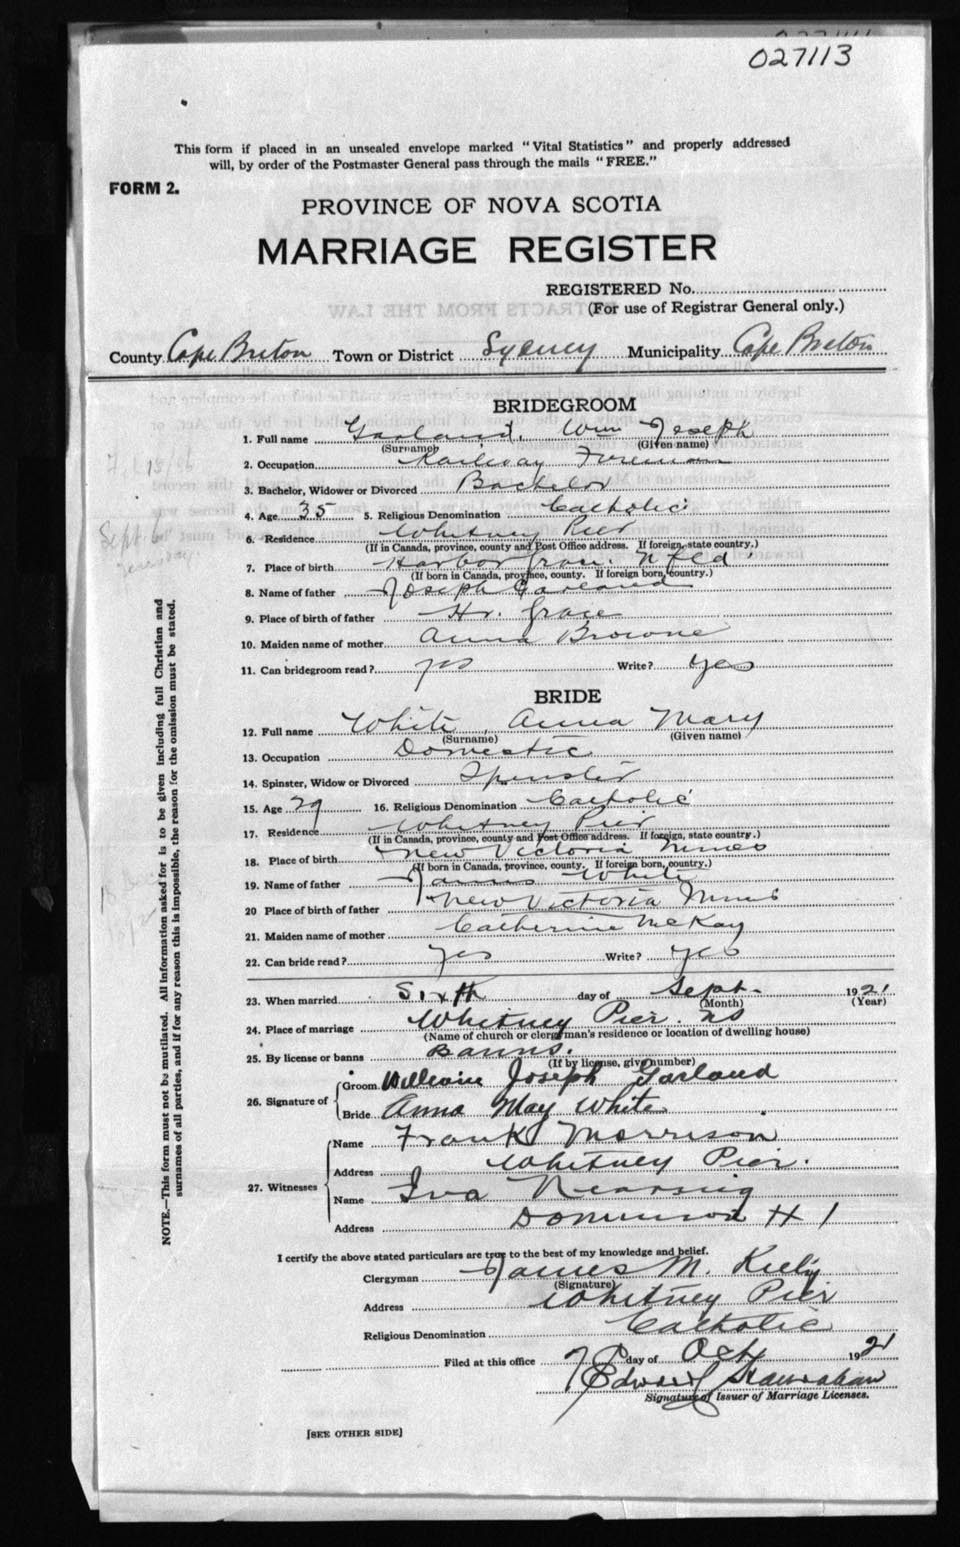 027113
This form if placed in an unsealed envelope marked "Vital Statistics" and properly addressed
will, by order of the Postmaster General pass through the mails "FREE."
FORM 2.
PROVINCE OF NOVA SCOTIA
MARRIAGE REGISTER
REGISTERED No.
(For use of Registrar General only.)
County Cape Breton Town or District Sydney Municipality Cape Breton
BRIDEGROOM
1. Full name Garland, Wm Joseph
(Surname) (Given name)
2. Occupation Railway Foreman
3. Bachelor, Widower or Divorced Bachelor
4. Age 35 5. Religious Denomination Catholic
6. Residence Whitney Pier
(If in Canada, province, county and Post Office address. If foreign, state country.)
7. Place of birth Harbor Grace. Nfld
(If born in Canada, province, county. If foreign born, country.)
8. Name of father Joseph Garland
9. Place of birth of father Hr. Grace
10. Maiden name of mother Anna Browne
11. Can bridegroom read? yes Write? yes
BRIDE
12. Full name White, Anna Mary
(Surname) (Given name)
13. Occupation Domestic
14. Spinster, Widow or Divorced Spinster
15. Age 29 16. Religious Denomination Catholic
17. Residence Whitney Pier
(If in Canada, province, county and Post Office address. If foreign, state country.)
18. Place of birth New Victoria Mines
(If born in Canada, province, county. If foreign born, country.)
19. Name of father James White
20 Place of birth of father New Victoria Mines
21. Maiden name of mother Catherine McKay
22. Can bride read? yes Write? yes
23. When married Sixth day of Sept. 1921
(Month) (Year)
24. Place of marriage Whitney Pier. NS
(Name of church or clergyman's residence or location of dwelling house)
25. By license or banns Banns.
(If by license, give number)
26. Signature of Groom William Joseph Garland
Bride Anna May White
27. Witnesses Name Frank Morrison
Address Whitney Pier.
Name Iva Nearing
Address Dominion # 1
I certify the above stated particulars are true to the best of my knowledge and belief.
Clergyman James M. Kiely
(Signature)
Address Whitney Pier
Religious Denomination Catholic
Filed at this office 7 day of Oct 1921
Edward
Signature of Issuer of Marriage Licenses.
[SEE OTHER SIDE]
NOTE.—This form must not be mutilated. All information asked for is to be given including full Christian and
surnames of all parties, and if for any reason this is impossible, the reason for the omission must be stated.
Sept. 6